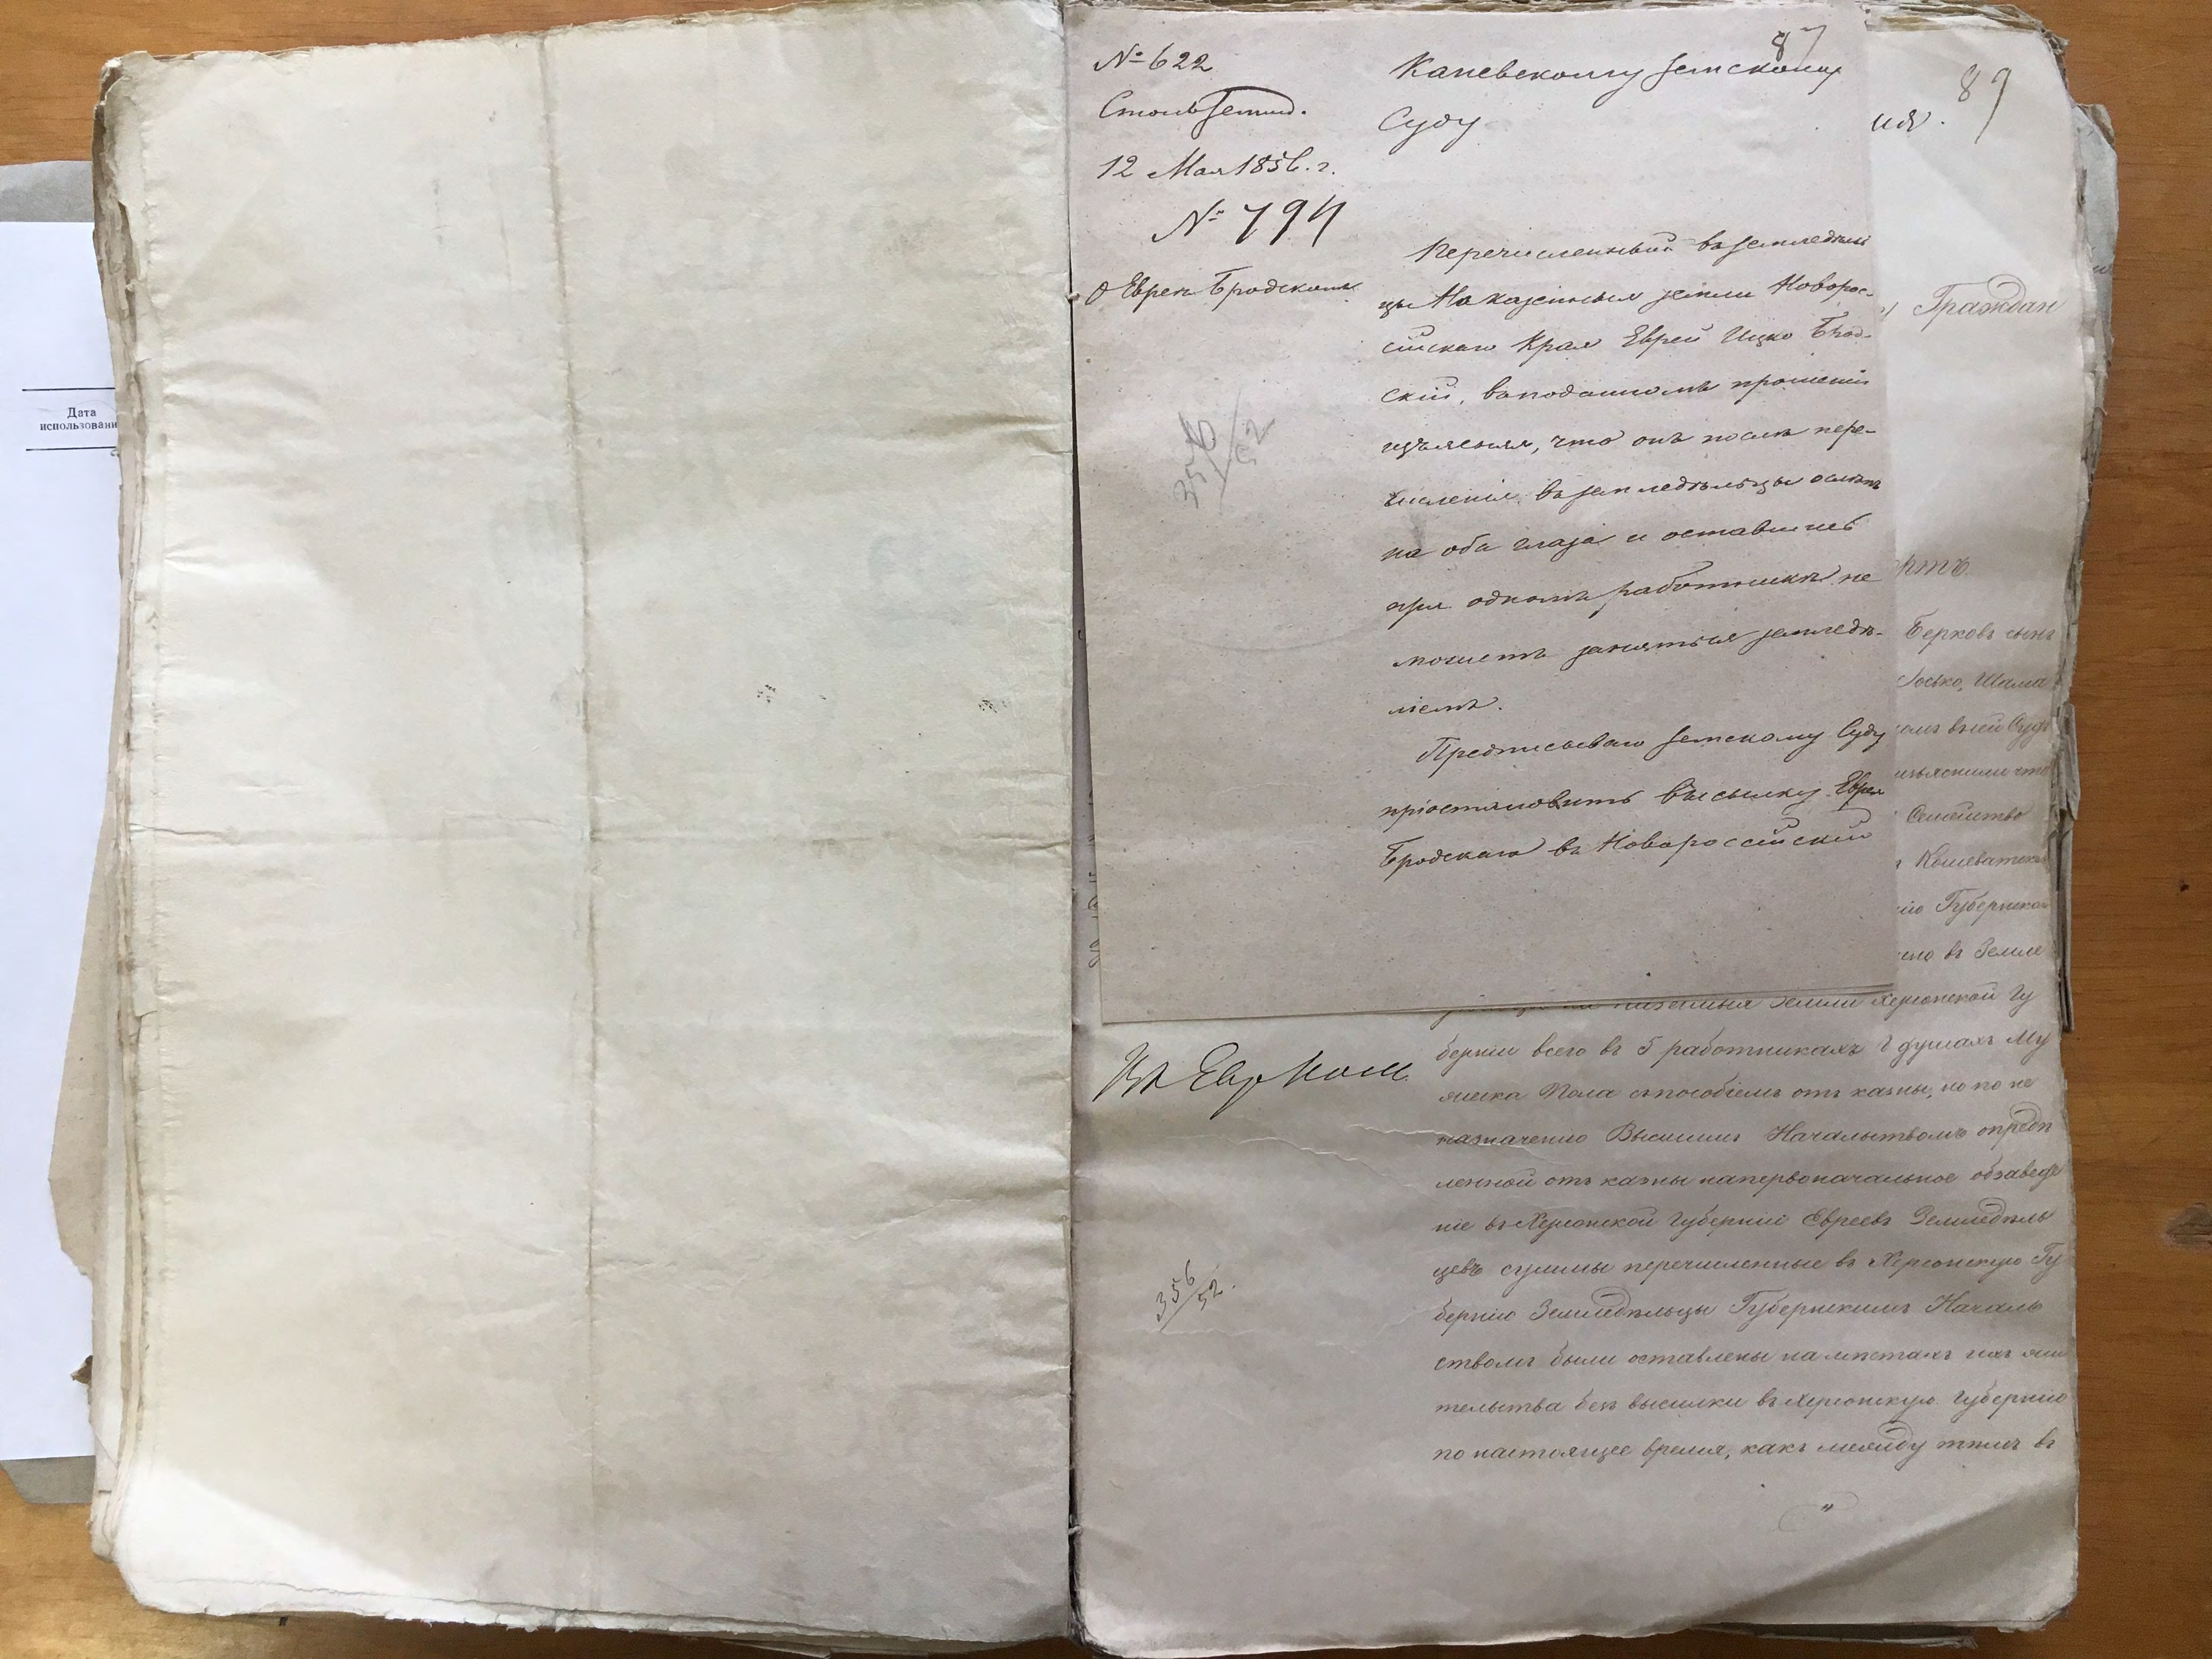 Дата
использовани
№ 622
12 Мая 1856. г.
№ 794
О Евреѣ Бродскомъ
356/52
87
Каневскому Земскому
Суду
Перечисленный въ Земледѣль
цы На казенныя земли Новорос-
сійскаго Края Еврей Ицко Брод-
скій, въ поданномъ прошеніи
изъясняя, что онъ послѣ пере-
численія въ земледѣльцы ослѣпъ
на оба глаза и оставшись
при одномъ работникѣ не
можетъ заняться земледѣ-
ліемъ.
Предписываю Земскому Суду
пріостановить высылку Еврея
Бродскаго въ Новороссійскій
89
ія.
Граждан
ртъ
Берковъ сынъ
Іосько, Шама
изъяснили что
Семейство
Кошеватска
ію Губернско
ено въ Земле
казенныя Земли Херсонской Гу
берніи всего въ 5 работникахъ душахъ Му
жеска Пола съ пособіемъ отъ казны, но по не
назначенію Высшимъ Начальствомъ опредѣ
ленной отъ казны на первоначальное обзаведе
ніе въ Херсонской Губерніи Евреевъ Земледѣль
цевъ суммы перечисленные въ Херсонскую Гу
бернію Земледѣльцы Губернскимъ Началь
ствомъ были оставлены на мѣстахъ ихъ жи
тельства безъ высылки въ Херсонскую Губернію
по настоящее время, какъ между тѣмъ въ
356/52.